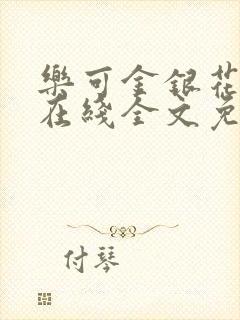 樂可金銀花
在綫全文免
付琴